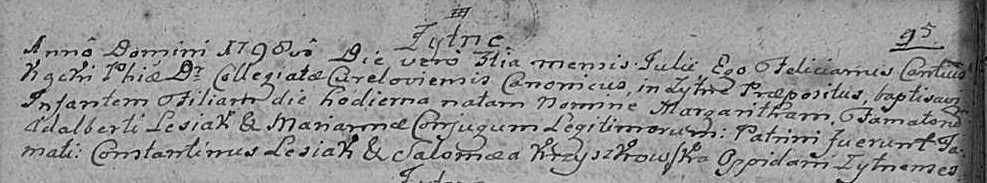 Żytne
95.
Anno Domini 1798vo Die vero 7tia mensis Julii Ego Felicianus Cantius
Kącki Phiæ Dr Collegiatæ Cureloviensis Canonicus, in Żytne Præpositus, baptisavi
Infantem Filiam die hodierna natam Nomine Margaritham, Famatorum
Adalberti Lesiak & Mariannæ Conjugum Legitimorum: Patrini fuerunt Fa-
mati: Constantinus Lesiak & Salomæa Krzyszkowska Oppidani Żytnenses